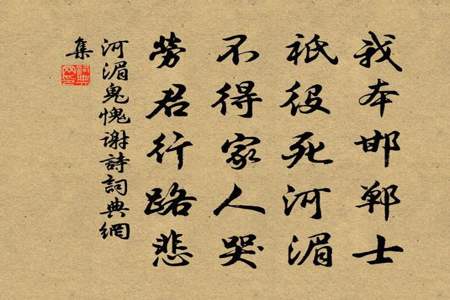 我本邯郸士
祇役死河湄
不得家人哭
劳君行路悲
河湄鬼愧谢詩詞典網
集